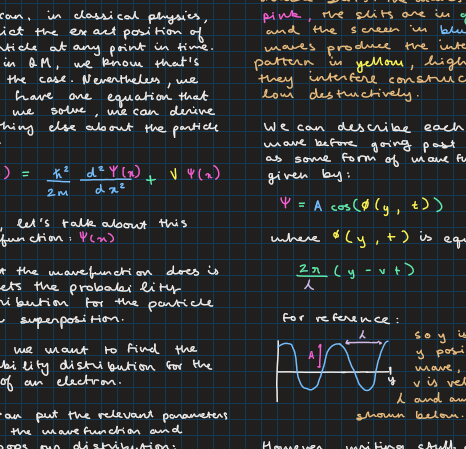 can, in classical physics,
the exact position of
at any point in time.
in QM, we know that's
the case. Nevertheless, we
have one equation that
we solve, we can derive
else about the particle
) = ħ²/2m d²Ψ(x)/dx² + V Ψ(x)
, let's talk about this
function: Ψ(x)
the wavefunction does is
the probability
for the particle
superposition.
we want to find the
distribution for the
of an electron.
can put the relevant parameters
the wavefunction and
our distribution:
pink, the slits are in
and the screen in
waves produce the
pattern in yellow,
they interfere
low destructively.
We can describe each
wave before going past
as some form of wave
given by:
Ψ = A cos(φ(y, t))
where φ(y, t) is
2π/λ (y - vt)
for reference:
λ
A
y
so y is
y
wave,
v is
λ and
shown below.
However, writing stuff